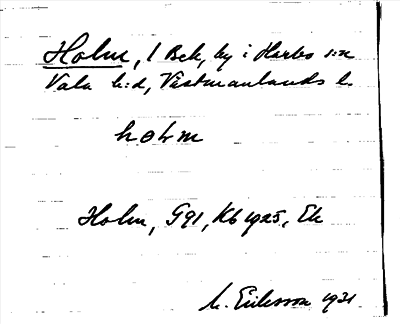 Holm, 1 Bek, by i Harbo s:n
Vala h:d, Västmanlands l.
holm
Holm, G91, Kb 1925, Ek
M. Eriksson 1931